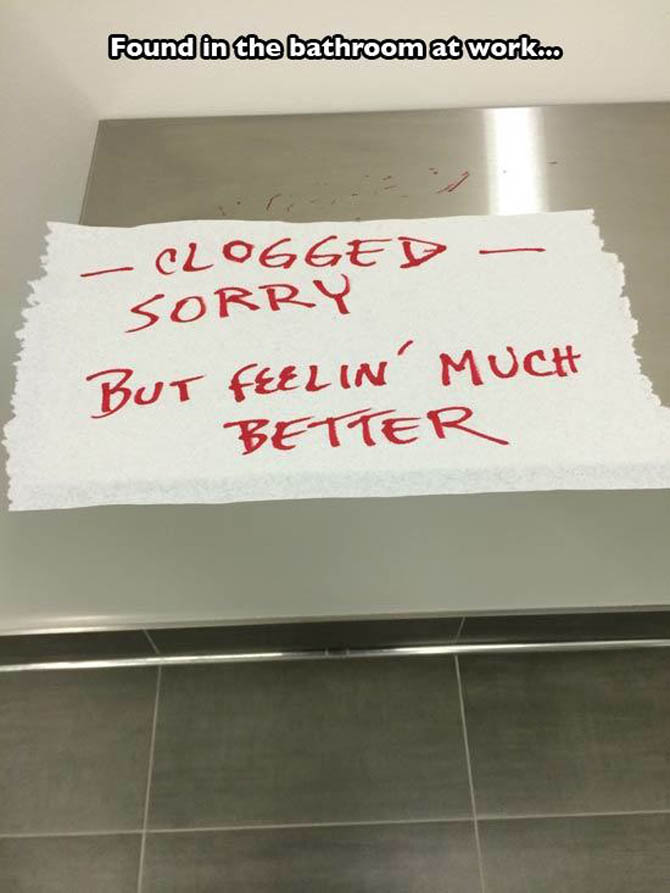 Found in the bathroom at work...
— CLOGGED —
SORRY
BUT FEELIN' MUCH
BETTER